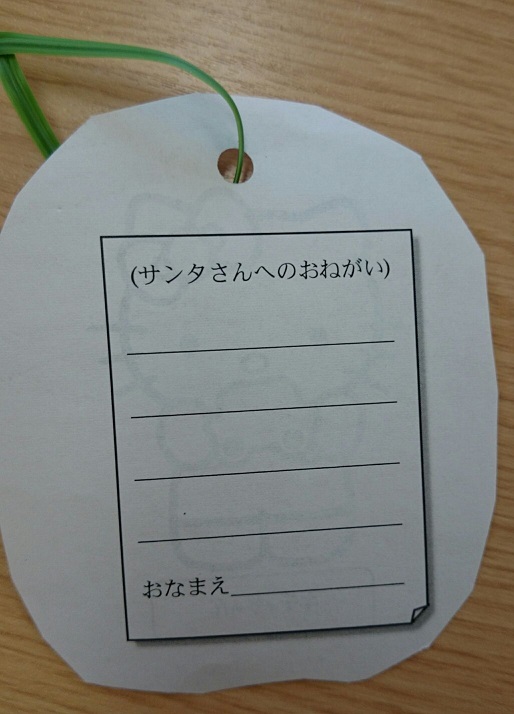 (サンタさんへのおねがい)
おなまえ